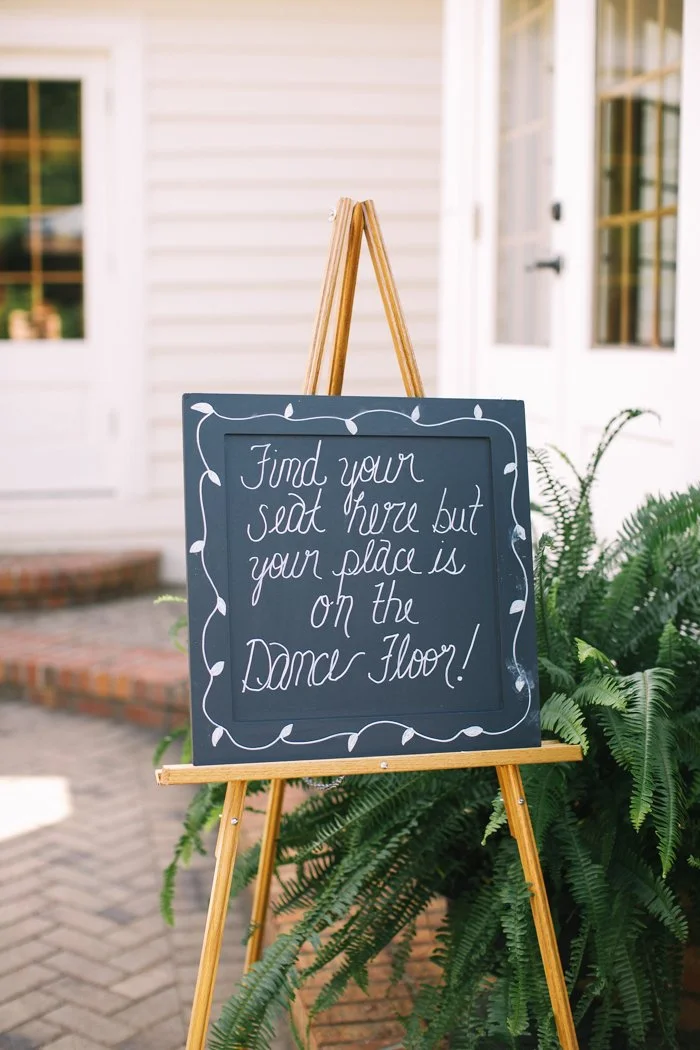 Find your
seat here but
your place is
on the
Dance Floor!